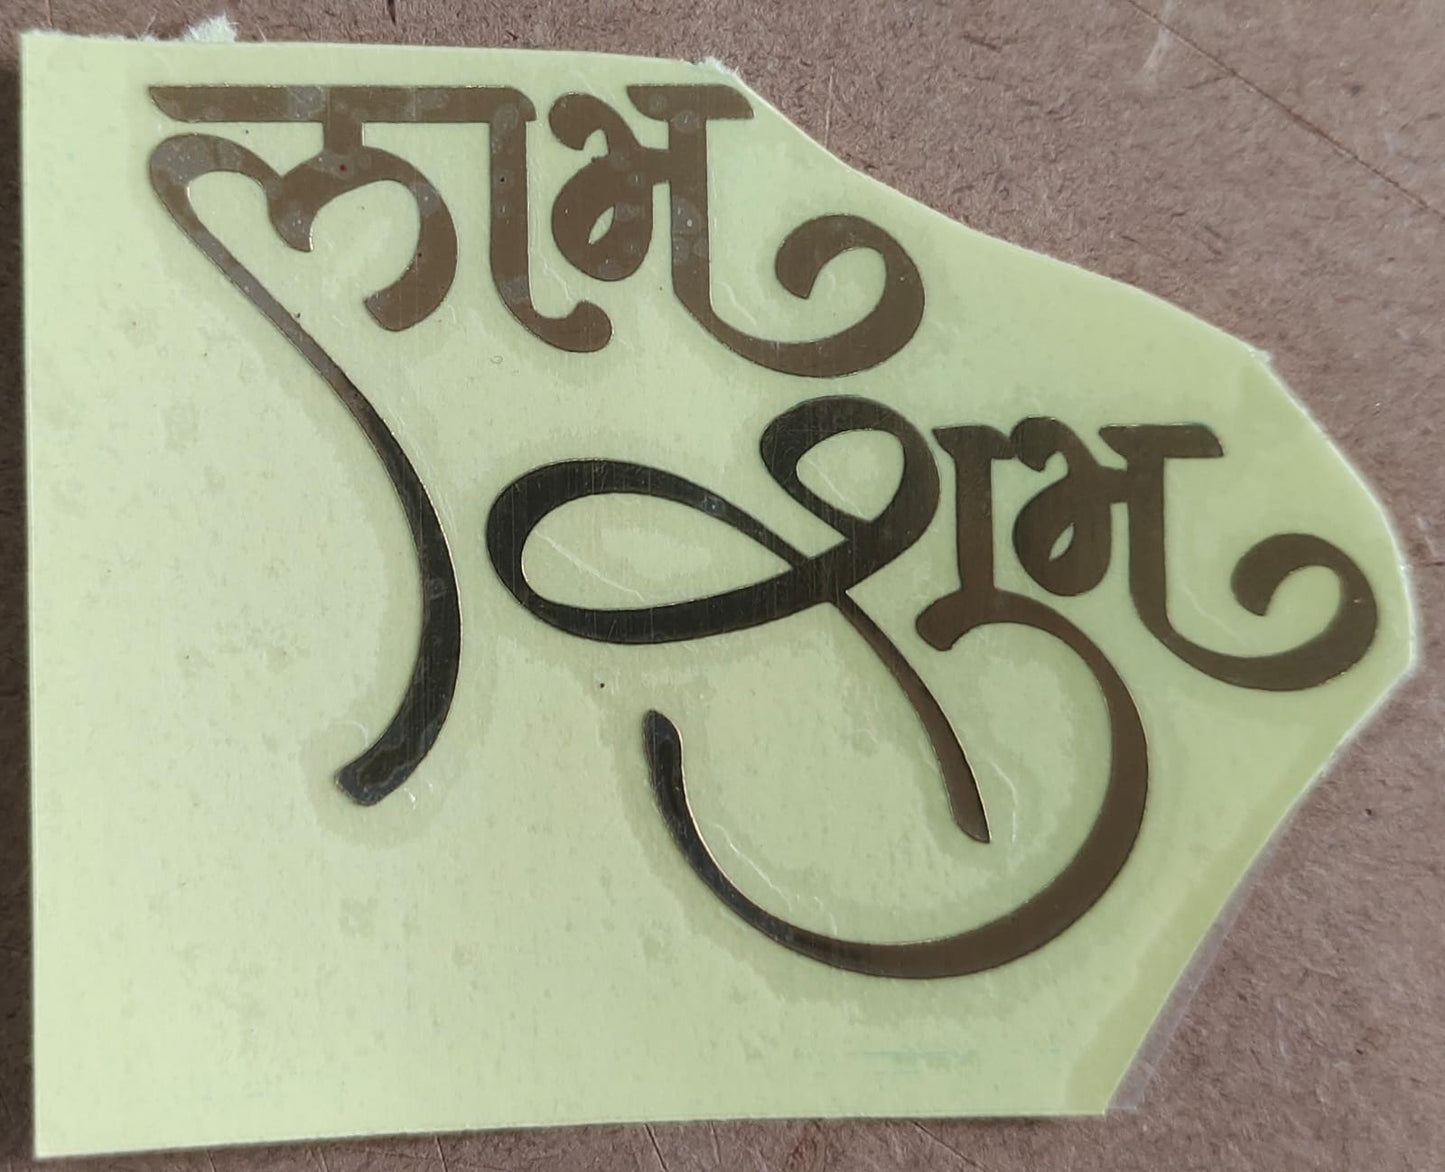 लाभ
शुभ